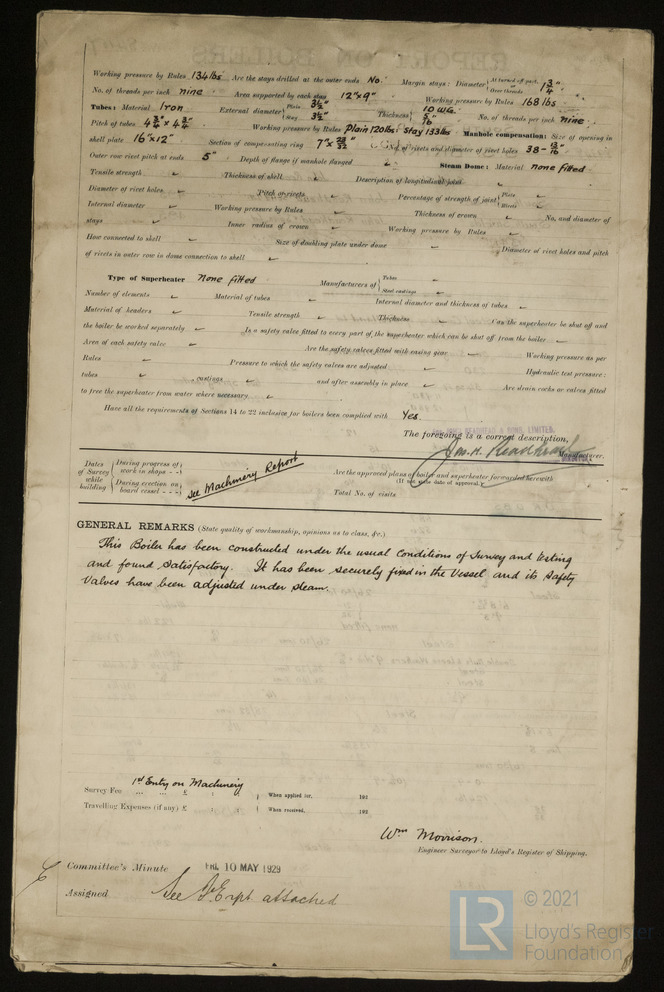 Working pressure by Rules 134 lbs Are the stays drilled at the outer ends No. Margin stays: Diameter { At turned off part, Over threads 1 3/4"
No. of threads per inch nine Area supported by each stay 12"x9" Working pressure by Rules 168 lbs
Tubes: Material Iron External diameter { Plain 3 1/2" Stay 3 1/2" Thickness { 10 W.G. 5/16 No. of threads per inch nine
Pitch of tubes 4 3/4" x 4 3/4" Working pressure by Rules Plain 120 lbs: Stay 133 lbs Manhole compensation: Size of opening in
shell plate 16"x12" Section of compensating ring 7"x 23/32" No. of rivets and diameter of rivet holes 38 - 13/16"
Outer row rivet pitch at ends 5" Depth of flange if manhole flanged Steam Dome: Material none fitted
Tensile strength Thickness of shell Description of longitudinal joint
Diameter of rivet holes Pitch of rivets Percentage of strength of joint { Plate Rivets
Internal diameter Working pressure by Rules Thickness of crown No. and diameter of
stays Inner radius of crown Working pressure by Rules
How connected to shell Size of doubling plate under dome Diameter of rivet holes and pitch
of rivets in outer row in dome connection to shell
Type of Superheater None fitted Manufacturers of { Tubes Steel castings
Number of elements Material of tubes Internal diameter and thickness of tubes
Material of headers Tensile strength Thickness Can the superheater be shut off and
the boiler be worked separately Is a safety valve fitted to every part of the superheater which can be shut off from the boiler
Area of each safety valve Are the safety valves fitted with easing gear Working pressure as per
Rules Pressure to which the safety valves are adjusted Hydraulic test pressure:
tubes castings and after assembly in place Are drain cocks or valves fitted
to free the superheater from water where necessary
Have all the requirements of Sections 14 to 22 inclusive for boilers been complied with Yes.
READHEAD & SONS, LIMITED.
The foregoing is a correct description,
Jas. H. Readhead Manufacturer.
Dates of Survey while building { During progress of work in shops - - During erection on board vessel - - - See Machinery Report
Are the approved plans of boiler and superheater forwarded herewith
(If not state date of approval.)
Total No. of visits
GENERAL REMARKS (State quality of workmanship, opinions as to class, &c.)
This Boiler has been constructed under the usual Conditions of Survey and testing
and found satisfactory. It has been securely fixed in the Vessel and its Safety
Valves have been adjusted under steam.
1st Entry on Machinery
Survey Fee ... ... £ : : } When applied for, 192
Travelling Expenses (if any) £ : : } When received, 192
Wm Morrison.
Engineer Surveyor to Lloyd's Register of Shipping.
Committee's Minute FRI. 10 MAY 1929
Assigned See attached
© 2021
LR Lloyd's Register
Foundation